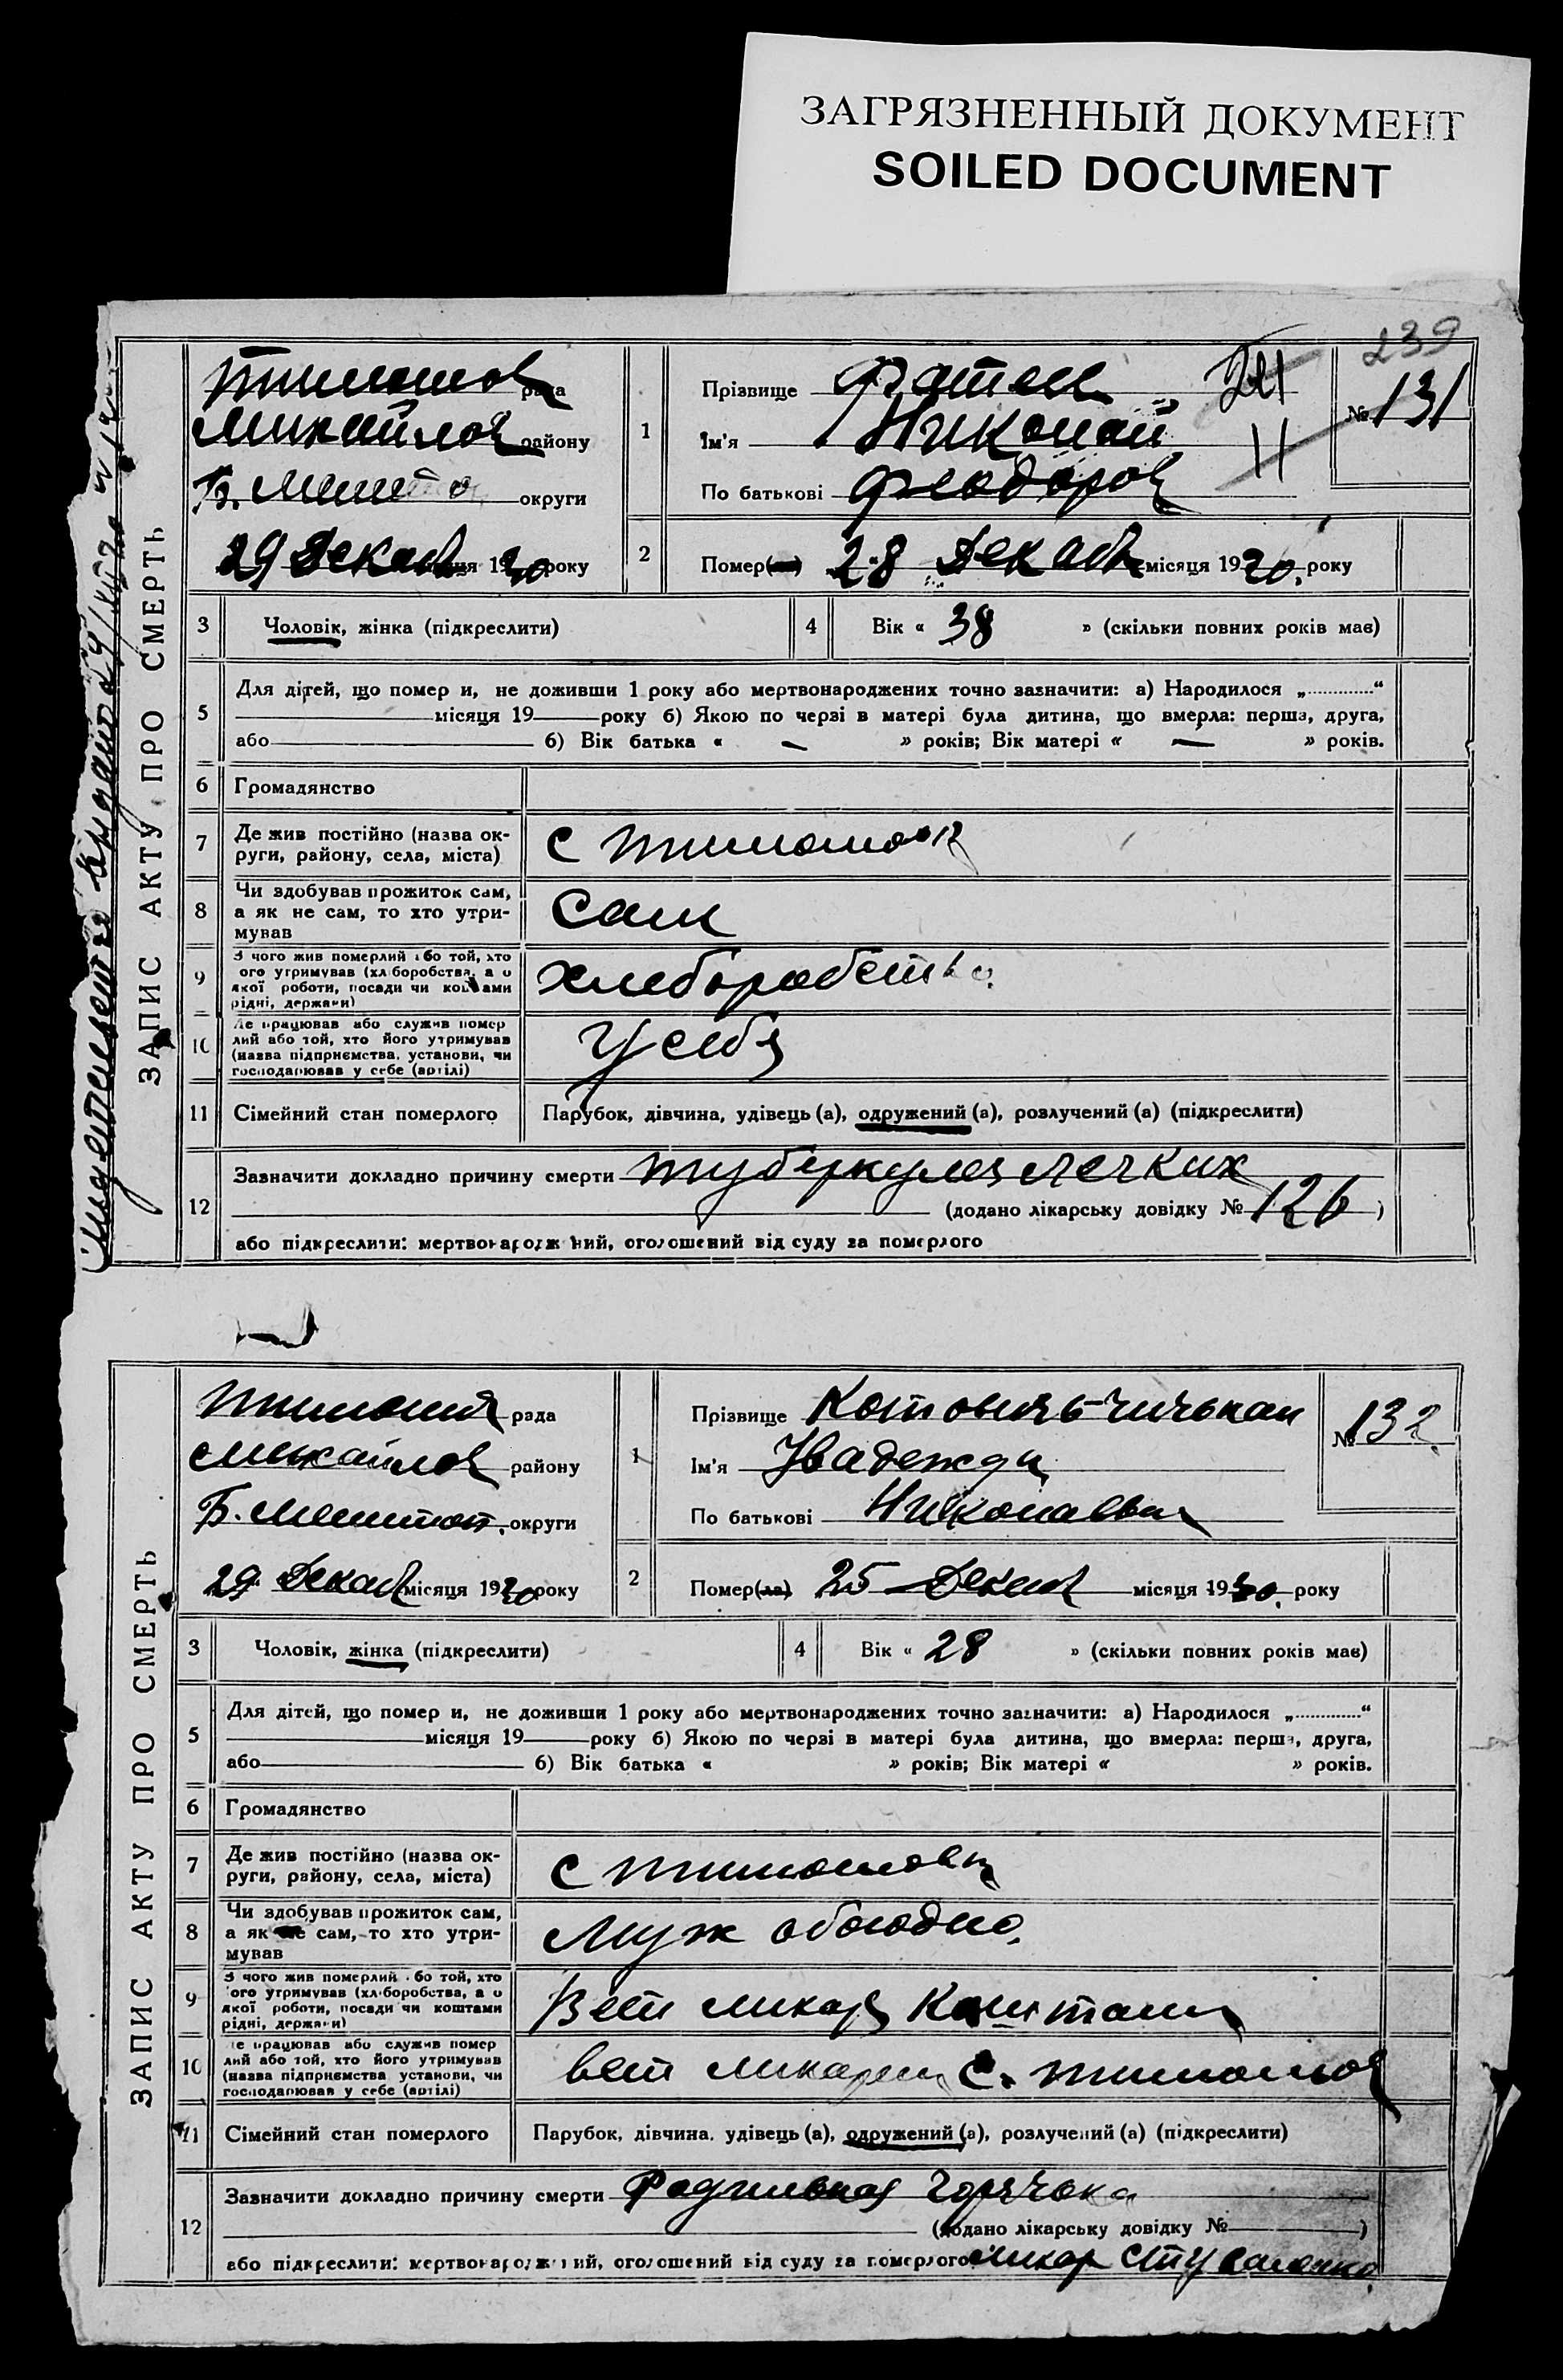 ЗАГРЯЗНЕННЫЙ ДОКУМЕНТ
SOILED DOCUMENT
239
ЗАПИС АКТУ ПРО СМЕРТЬ
рада
району
Б. округи
29 Декаб місяця 1930 року
1
Прізвище
Ім'я Николай
По батькові Феодоров
№ 131
11
2
Помер(ла) 28 Декаб місяця 1930. року
3 Чоловік, жінка (підкреслити)
4 Вік « 38 » (скільки повних років мав)
5
Для дітей, що помер и, не доживши 1 року або мертвонароджених точно зазначити: а) Народилося „.............“
місяця 19 року б) Якою по черзі в матері була дитина, що вмерла: перша, друга,
або б) Вік батька « – » років; Вік матері « – » років.
6 Громадянство
7
Де жив постійно (назва ок-
руги, району, села, міста)
с
8
Чи здобував прожиток сам,
а як не сам, то хто утри-
мував
Сам
9
З чого жив померлий або той, хто
ого утримував (хліборобства, а о
якої роботи, посади чи коштами
рідні, держави)
хлеборобство
10
Де працював або служив помер
лий або той, хто його утримував
(назва підприємства, установи, чи
господарював у себе (артілі)
У себя
11 Сімейний стан померлого
Парубок, дівчина, удівець (а), одружений (а), розлучений (а) (підкреслити)
12
Зазначити докладно причину смерти туберкулез легких
(додано лікарську довідку № 126 )
або підкреслити: мертвонароджений, оголошений від суду за померлого
ЗАПИС АКТУ ПРО СМЕРТЬ
рада
Михайлов району
Б. Мелитоп. округи
29 Декаб місяця 1930 року
1
Прізвище
Ім'я Надежда
По батькові Николаевна
№ 132
2
Помер(ла) 25 Декаб місяця 1930. року
3 Чоловік, жінка (підкреслити)
4 Вік « 28 » (скільки повних років мав)
5
Для дітей, що помер и, не доживши 1 року або мертвонароджених точно зазначити: а) Народилося „.............“
місяця 19 року б) Якою по черзі в матері була дитина, що вмерла: перша, друга,
або б) Вік батька « » років; Вік матері « » років.
6 Громадянство
7
Де жив постійно (назва ок-
руги, району, села, міста)
с
8
Чи здобував прожиток сам,
а як не сам, то хто утри-
мував
Муж обоюдно.
9
З чого жив померлий або той, хто
ого утримував (хліборобства, а о
якої роботи, посади чи коштами
рідні, держави)
Вет
10
Де працював або служив помер
лий або той, хто його утримував
(назва підприємства установи, чи
господарював у себе (артілі)
вет с.
11 Сімейний стан померлого
Парубок, дівчина, удівець (а), одружений (а), розлучений (а) (підкреслити)
12
Зазначити докладно причину смерти Родильная горячка
(додано лікарську довідку № )
або підкреслити: мертвонароджений, оголошений від суду за померлого